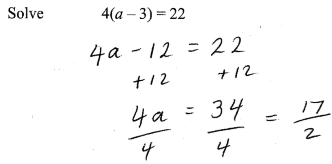 Solve 4(a – 3) = 22
4a - 12 = 22
+12 +12
4a/4 = 34/4 = 17/2